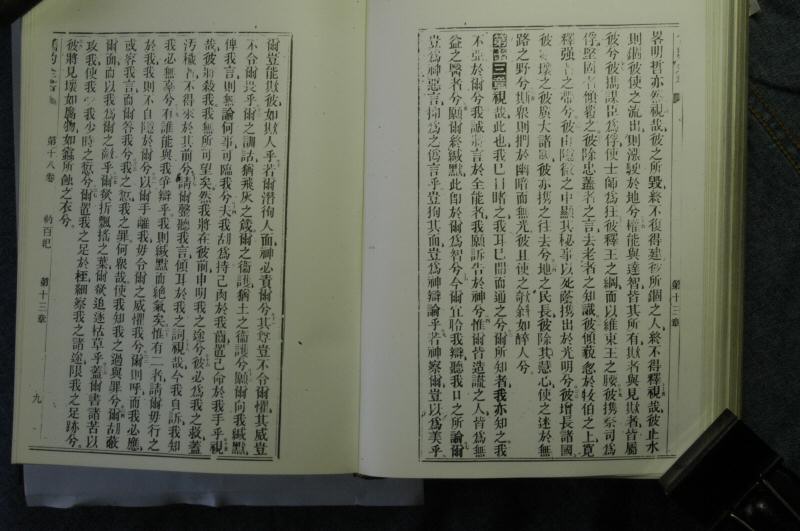 畧明哲亦然視哉彼之所毀終不復得建彼所錮之人終不得釋視哉彼止水
則錮彼使之流出則濕駛於地兮權能與達智皆其所有欺者與見欺者皆屬
彼兮彼攜謀臣爲俘使士師爲狂彼釋王之綱而以維束王之腰彼攜祭司爲
俘堅固者傾殺之彼除忠藎者之言去老者之知識彼傾藐忽於牧伯之上寬
釋強者之帶兮彼由隱微之中顯其秘事以死蔭攜出於光明兮彼增長諸國
彼壞之彼廣大諸國彼亦攜之往去兮地之民長彼除其慧心使之迷於無
路之野兮斯眾則捫於幽暗而無光彼且使之欹斜如醉人兮
第十三章視哉此也我已目睹之我耳已聞而通之兮爾所知者我亦知之我
不亞於爾兮我誠言於全能者我願訴告於神兮惟爾皆造謊之人皆爲無
益之醫者兮願爾終緘默此即於爾爲智兮今爾宜聆我辯聽我口之所論爾
豈爲神惡言抑爲之僞言乎豈拘其面豈爲神辯論乎若神察爾豈以爲美乎
第十三章
爾豈能欺彼如欺人乎若爾潛徇人面神必責爾兮其尊豈不令爾懼其威豈
不令爾畏乎爾之訓詁猶飛灰之箴爾之衞護猶土之衞護兮願爾向我緘默
俾我言則無論何事可臨我兮夫我胡爲持己肉於我齒置己命於我手乎視
哉彼將殺我我無所可望矣然我將在彼前申明我之途兮彼必爲我之救蓋
汚穢者不得來於其前兮請爾盤聽我言傾耳於我之詞視哉今我自訴我知
我必無辜兮有誰能與我爭辯乎我則緘默而絕氣矣惟有二者請爾毋行之
於我我則不自隱於爾兮以爾手離我毋令爾之威懼我兮爾則呼而我必應
或容我言而爾答我兮我之愆我之罪何衆哉使我知我之過與罪兮爾胡蔽
爾面而以我爲爾之敵乎爾欲折飄搖之葉爾欲追逐枯草乎蓋爾書諸苦以
攻我使我受我少時之愆兮爾置我之足於桎細察我之諸途限我之足跡兮
彼將見壞如腐物如蠧所蝕之衣兮
第十八卷
約百記
第十三章
九